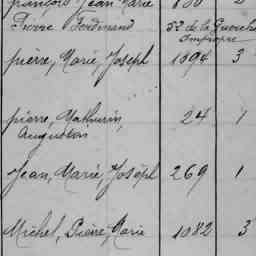 François Jean Marie 880 2
Pierre Ferdinand Sr de la Guerche
Impropre
pierre, Marie, Joseph 1094 3
pierre, Mathurin, 24 1
Augustin
Jean, Marie, Joseph 269 1
Michel, Pierre, Marie 1082 3